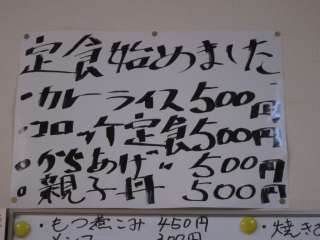 定食始めました
・カレーライス500円
・コロッケ定食500円
・からあげ〃 500円
・親子丼 500円
・もつ煮こみ 450円
・焼き